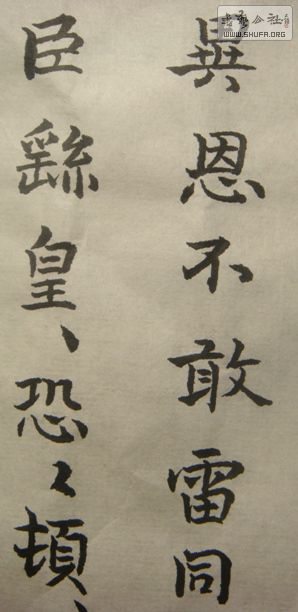 異恩不敢雷同
臣繇皇、恐〻頓、
公社
WWW.SHUFA.ORG